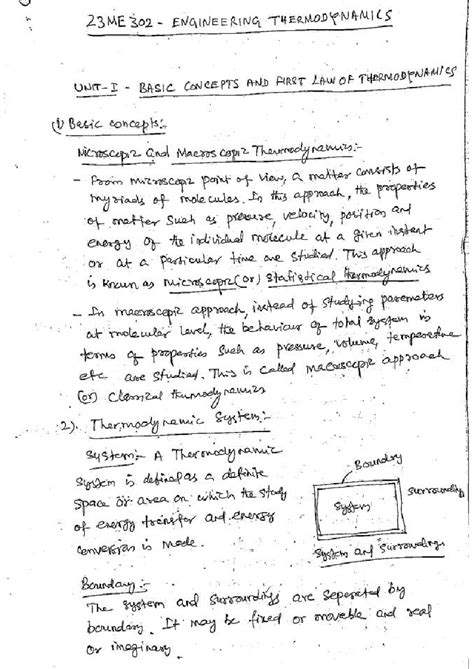 23ME302 - ENGINEERING THERMODYNAMICS
UNIT-I - BASIC CONCEPTS AND FIRST LAW OF THERMODYNAMICS
1) Basic concepts:-
Microscopic and Macroscopic Thermodynamics:-
- From microscopic point of view, a matter consists of
myriads of molecules. In this approach, the properties
of matter such as pressure, velocity, position and
energy of the individual molecule at a given instant
or at a particular time are studied. This approach
is known as microscopic (or) statistical thermodynamics
- In macroscopic approach, instead of studying parameters
at molecular level, the behaviour of total system in
terms of properties such as pressure, volume, temperature
etc are studied. This is called macroscopic approach
(or) Classical thermodynamics
2). Thermodynamic System:-
System:- A Thermodynamic
system is defined as a definite
space or area on which the study
of energy transfer and energy
conversion is made.
Boundary
System
Surrounding
System and Surroundings
Boundary:-
The system and surroundings are seperated by
boundary. It may be fixed or movable and real
or imaginary.